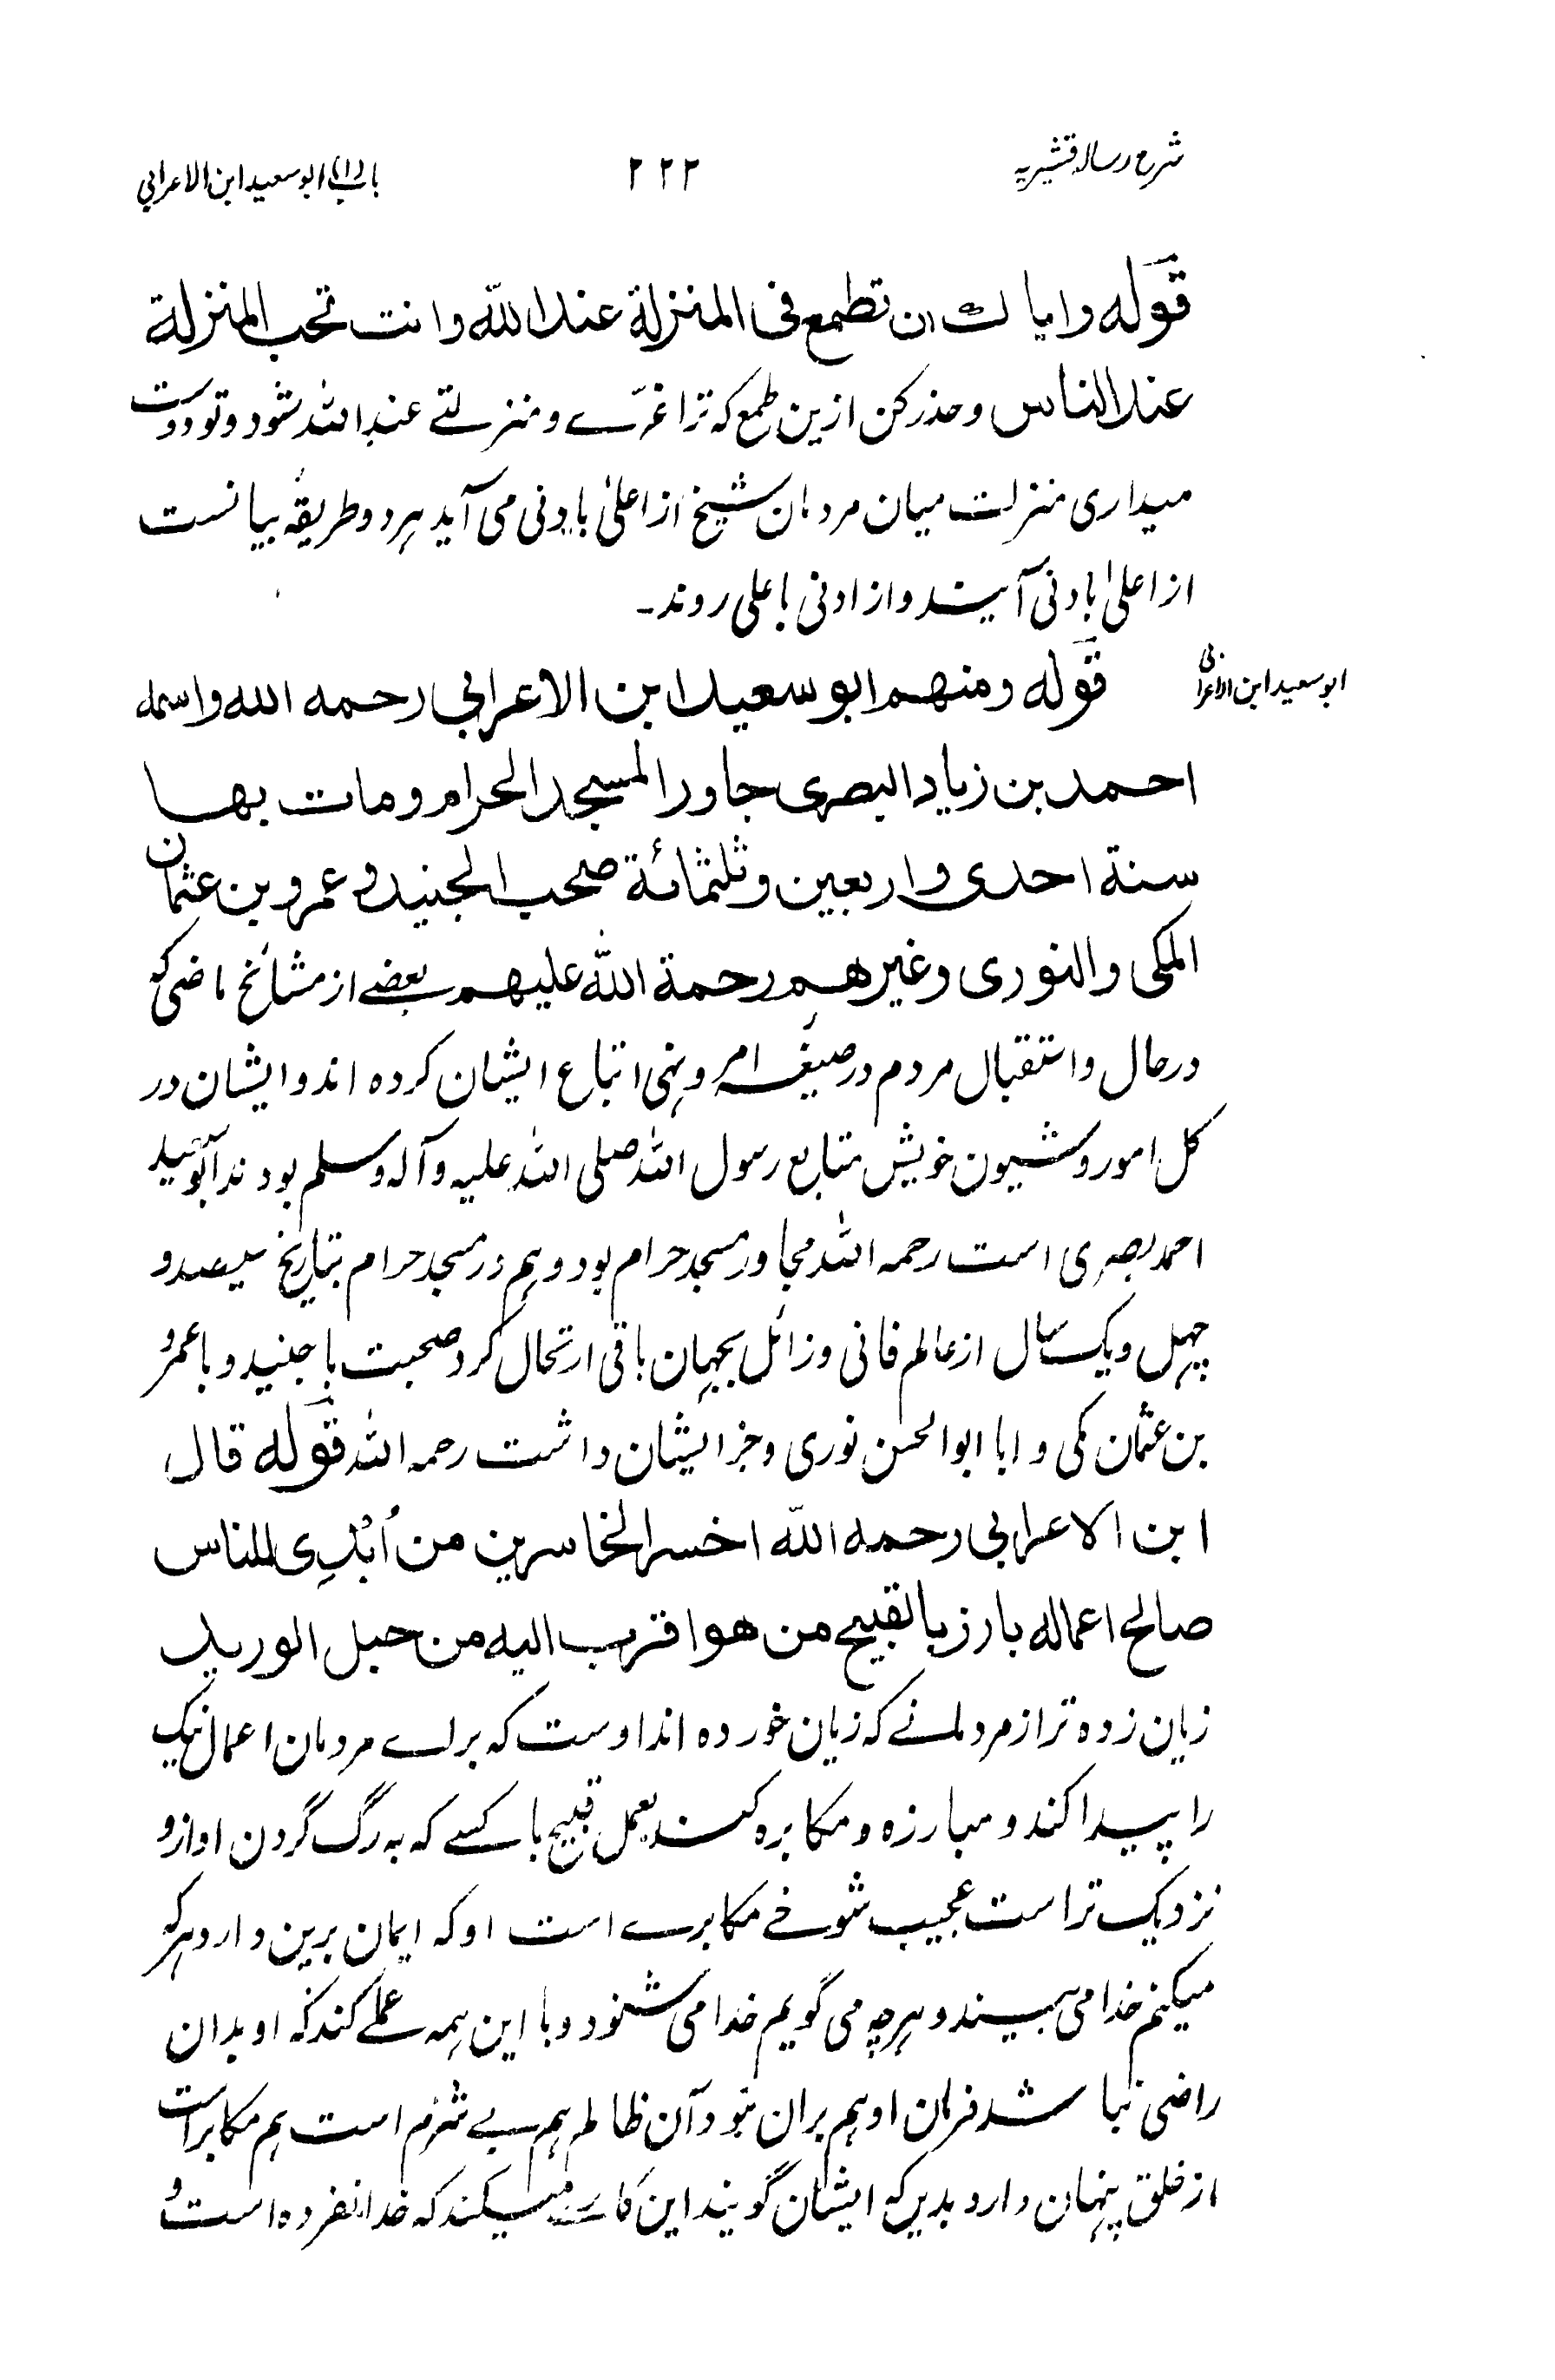 شرح رسالہ قشیریہ
۲۲۲
باب (۱) ابو سعید ابن الاعرابی
قوله وایاك ان تطمع فی المنزلة عند الله وانت تحب المنزلة
عند الناس وحذر کن ازین طمع که ترا عزّے و منزلتے عند الله شود و تو دوست
میداری منزلت میان مردمان شیخ از اعلیٰ بادنی می آید ہردو طریقہ بیانست
از اعلیٰ بادنی آیند و از ادنی باعلی روند۔
ابو سعید ابن الاعرابی
قوله ومنهم ابو سعید ابن الاعرابی رحمه الله واسمه
احمد بن زیاد البصری جاور المسجد الحرام ومات بها
سنة احدی واربعین وثلثمائة صحب الجنید و عمرو بن عثمان
المکی والنوری وغیرهم رحمة الله علیهم بعضے از مشائخ ماضی که
در حال و استقبال مردم در صیغہ امر و نہی اتباع ایشان کرده اند و ایشان در
کل امور و شیون خویش متابع رسول الله صلی الله علیه و آله وسلم بودند ابو سعید
احمد بصری است رحمه الله مجاور مسجد حرام بود و ہم در مسجد حرام بتاریخ سیصد و
چہل و یک سال از عالم فانی و زائل بجہان باقی ارتحال کرد صحبت با جنید و با عمرو
بن عثمان مکی و ابا ابو الحسن نوری و جز ایشان داشت رحمه الله قوله قال
ابن الاعرابی رحمه الله اخسر الخاسرین من اُبْدِی للناس
صالح اعماله بارز بالقبیح من هو اقرب الیه من حبل الورید
زیان زده تر از مردمانے که زیان خورده اند اوست که براے مردمان اعمال نیک
را پیدا کند و مبارزه و مکابره کند بعمل قبیح با کسے که به رگ گردن او ازو
نزدیک تر است عجیب شوخے مکابرے است او که ایمان برین دارد ہرکہ
میکنم خدا می بیند و ہرچه می گویم خدا می شنود و با این ہمه عملے کند که او بدان
راضی نباشد فرمان او ہم بران نبود آن ظالم ہم بے شرم است ہم مکابر است
از خلق پنہان دارد بدین که ایشان گویند این کارے میکند که خدا نفرموده است و